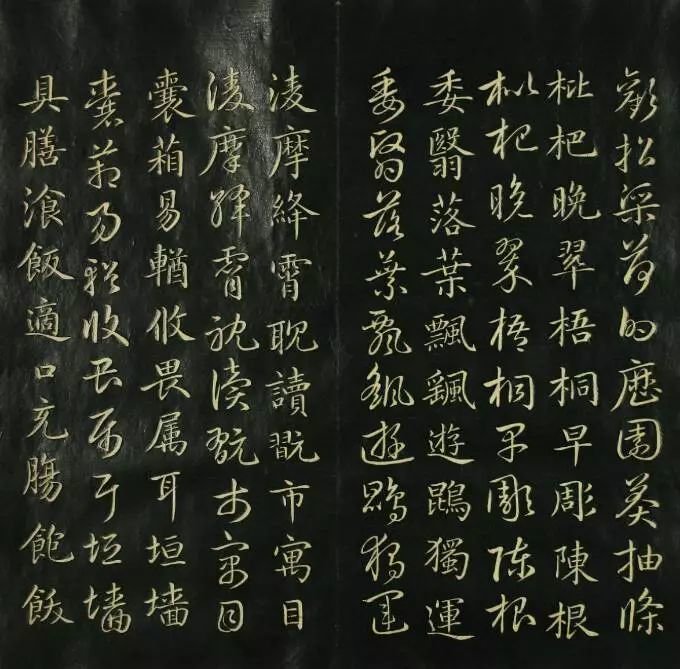 歡招渠荷的歷園莽抽條
枇杷晚翠梧桐早彫陳根
枇杷晚翠梧桐早彫陳根
委翳落葉飄颻遊鵾獨運
委翳落葉飄颻遊鵾獨運
淩摩絳霄耽讀翫市寓目
淩摩絳霄耽讀翫市寓目
囊箱易輶攸畏属耳垣墻
囊箱易輶攸畏属耳垣墻
具膳湌飯適口充腸飽飫